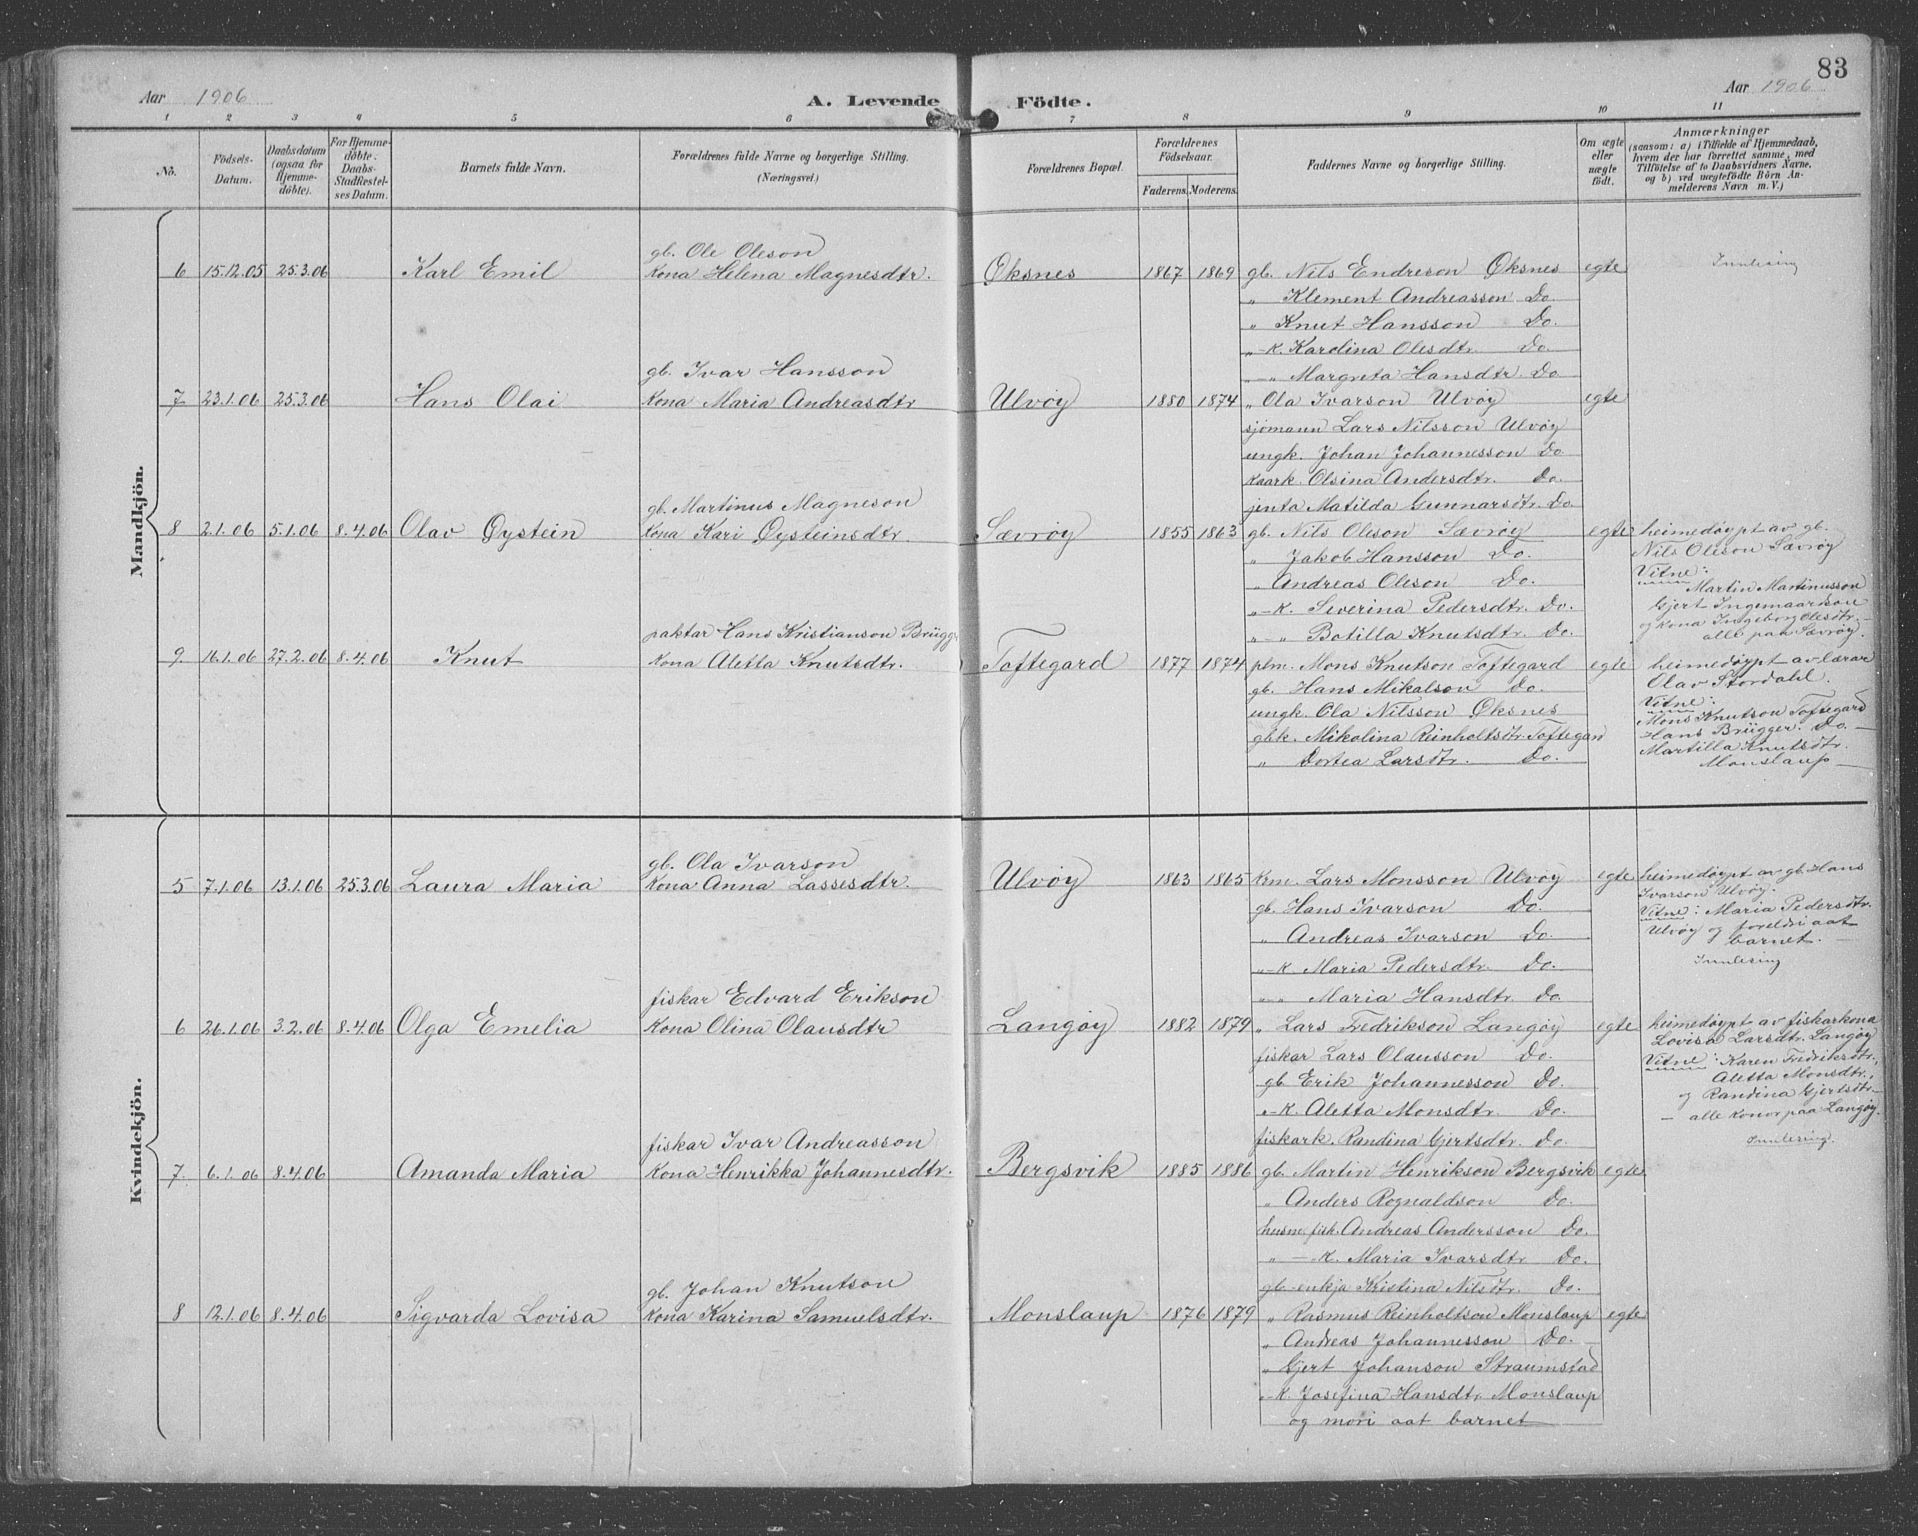 83
Aar 1906
A. Levende Födte.
Aar 1906
1 2 3 4 5 6 7 8 9 10 11
No.
Födsels-Datum.
Daabsdatum (ogsaa for Hjemmedöbte).
For Hjemmedöbte: Daabs-Stadfæstelses Datum.
Barnets fulde Navn.
Forældrenes fulde Navne og borgerlige Stilling.
(Næringsvei.)
Forældrenes Bopæl.
Forældrenes Födselsaar.
Faderens. Moderens.
Faddernes Navne og borgerlige Stilling.
Om ægte eller uægte födt.
Anmærkninger
(saasom: a) i Tilfælde af Hjemmedaab, hvem der har forrettet samme, med Tilföielse af to Daabsvidners Navne, og b) ved uægtefödte Börn Anmelderens Navn m. V.)
Mandkjön.
gb. Ole Oleson
6 15.12.05 25.3.06 Karl Emil Kona Helena Magnesdtr. Øksnes 1867 1869 gb. Nils Endreson Øksnes egte Innlesing
„ Klement Andreasson Do.
„ Knut Hansson Do.
„-K. Karolina Olesdtr. Do.
„-„ Margreta Hansdtr. Do
gb. Ivar Hansson
7 23.1.06 25.3.06 Hans Olai Kona Maria Andreasdtr Ulvøy 1880 1874 „ Ola Ivarson Ulvøy egte
sjømann Lars Nilsson Ulvøy
ungk. Johan Johannesson Do
Kaark. Olsina Andersdtr. Do.
jenta Matilda Gunnarsdtr. Do.
gb. Martinus Magneson
8 2.1.06 5.1.06 8.4.06 Olav Øystein Kona Kari Øysteinsdtr. Sævrøy 1855 1863 gb. Nils Oleson Sævrøy egte heimedøypt av gb.
Nils Oleson Sævrøy
„ Jakob Hansson Do.
Vitne:
„ Andreas Oleson Do.
Martin Martinusson
„-K. Severina Pedersdtr. Do.
Gjert Ingemaarson
og Kona Ingeborg Olesdtr.
„-„ Botilla Knutsdtr. Do.
alle paa Sævrøy.
paktar Hans Kristianson Brügg
9 16.1.06 27.2.06 8.4.06 Knut Kona Aletta Knutsdtr. Toftegard 1877 1874 ptm. Mons Knutson Toftegard egte heimedøypt av lærar
Olav Stordahl.
gb. Hans Mikalson Do.
Vitne:
ungk. Ola Nilsson Øksnes
Mons Knutson Toftegard
gbk. Mikolina Reinholtsdtr. Toftegar
Hans Brügger. Do.
Martilla Knutsdtr.
„ Dortea Larsdtr. Do.
Monslaup
Kvindekjön.
gb. Ola Ivarson
5 7.1.06 13.1.06 25.3.06 Laura Maria Kona Anna Lassesdtr. Ulvøy 1863 1865 krm. Lars Monsson Ulvøy egte heimedøypt av gb. Hans
Ivarson Ulvøy.
gb. Hans Ivarson Do.
Vitne: Maria Pedersdtr.
Ulvøy og foreldri aat
„ Andreas Ivarson Do.
barnet.
„-K Maria Pedersdtr. Do.
Innlesing
„-„ Maria Hansdtr. Do
fiskar Edvard Erikson
6 26.1.06 3.2.06 8.4.06 Olga Emelia Kona Olina Olausdtr Langøy 1882 1879 „ Lars Fredrikson Langøy egte heimedøypt av fiskarkona
Lovisa Larsdtr. Langøy
fiskar Lars Olausson Do.
Vitne: Karen Fredriksdtr.,
gb. Erik Johannesson Do.
Aletta Monsdtr.,
og Randina Gjertsdtr.
„-K. Aletta Monsdtr. Do.
— alle konor paa Langøy.
fiskark. Randina Gjertsdtr. Do.
Innlesing.
fiskar Ivar Andreasson
7. 6.1.06 8.4.06 Amanda Maria Kona Henrikka Johannesdtr. Bergsvik 1885 1886 gb. Martin Henrikson Bergsvik egte
„ Anders Rognaldson Do.
husm. fisk. Andreas Andersson Do.
„ — K. Maria Ivarsdtr Do.
gb. enkja Kristina Nilsdtr. Do.
gb. Johan Knutson
8 12.1.06 8.4.06 Sigvarda Lovisa Kona Karina Samuelsdtr. Monslaup 1876 1879 „ Rasmus Reinholtson Monslaup egte
„ Andreas Johannesson Do.
„ Gjert Johanson Straumstad
„-K. Josefina Hansdtr. Monslaup
og mori aat barnet